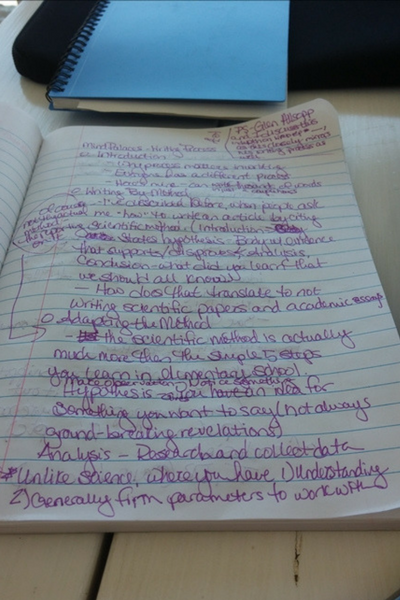 PS - Glen Allsopp
and I discuss this
as
Mind Palace - Writing Process
Introduction
Why process matters in writing
Everyone has a different process
Here's mine - an
of words
Writing By Method
- I've described before, when people ask
me "how" to write an article by citing
the Scientific method (Introduction
States hypothesis - Body w/ evidence
that supports/disproves & analysis
Conclusion - what did you learn that
we should all know)
- How does that translate to not
writing scientific papers and academic essays
Adapting the Method
- the scientific method is actually
much more than the simple 5 steps
you learn in elementary school.
Make observation / notice something
Hypothesis - You have an idea for
something you want to say (not always
ground-breaking revelations)
Analysis - Research and collect data
*Unlike science, where you have 1) Understanding
2) Generally firm parameters to work with